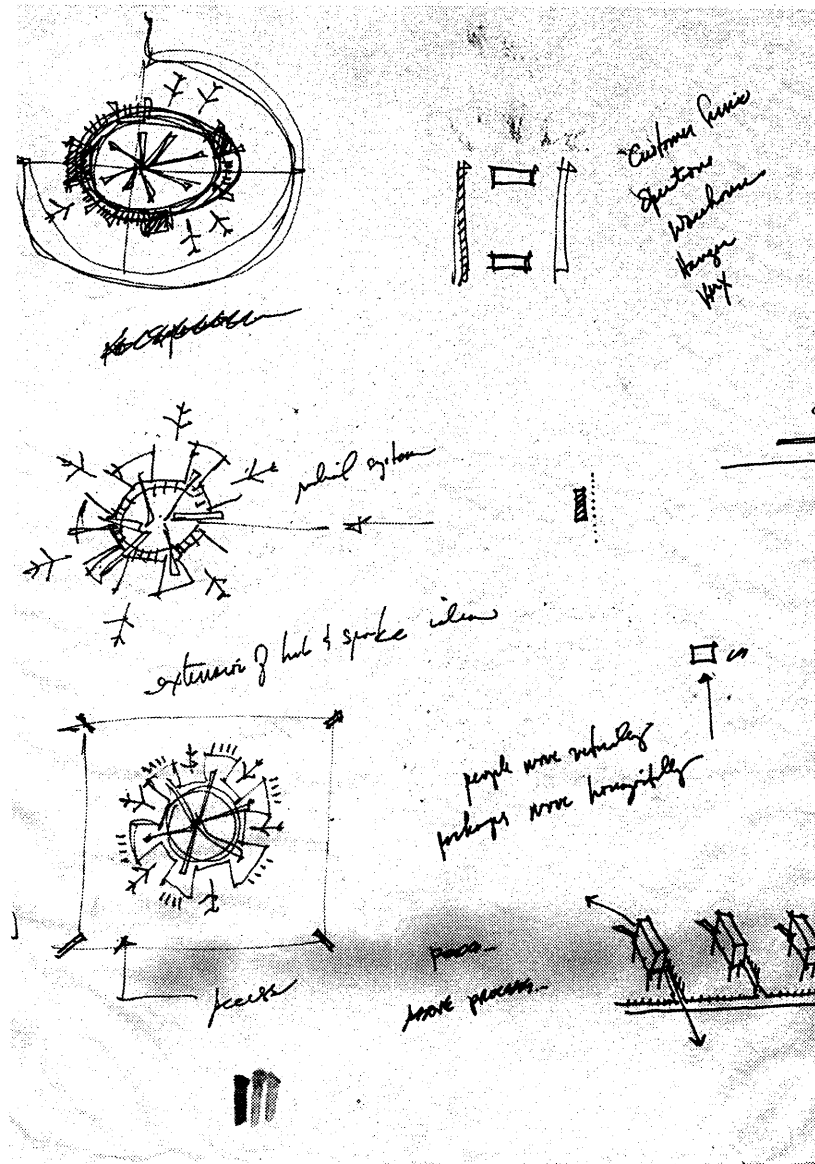 Customer Service
Operations
Warehouse
Hangar
radial system
extension of hub & spoke idea
people move vertically
packages move horizontally
Access
PODS
ABOVE PROCESS